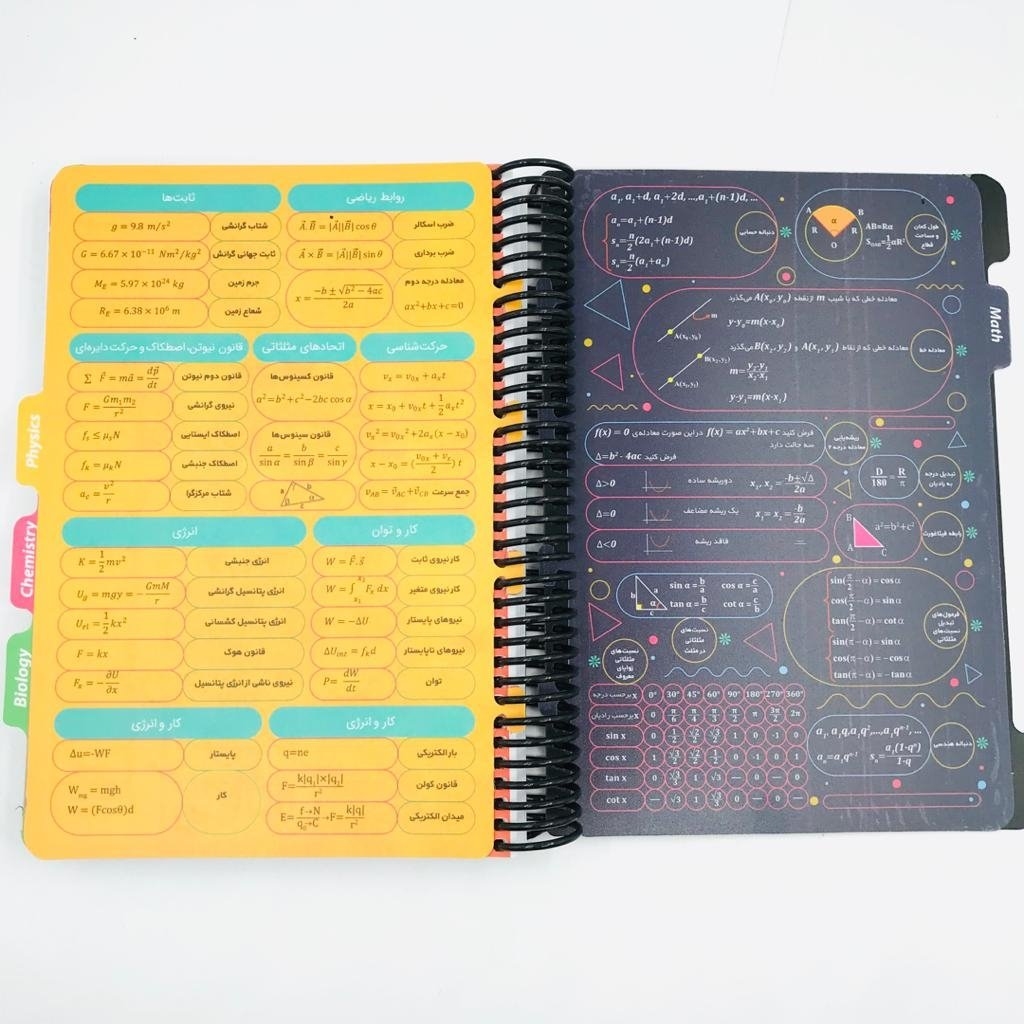 Physics
Chemistry
Biology
روابط ریاضی
ضرب اسکالر A⃗.B⃗ = |A⃗||B⃗| cos θ
ضرب برداری A⃗ × B⃗ = |A⃗||B⃗| sin θ
معادله درجه دوم
ax²+bx+c=0
x = (-b ± √(b² - 4ac))/2a
ثابت‌ها
شتاب گرانشی g = 9.8 m/s²
ثابت جهانی گرانش G = 6.67 × 10⁻¹¹ Nm²/kg²
جرم زمین M_E = 5.97 × 10²⁴ kg
شعاع زمین R_E = 6.38 × 10⁶ m
حرکت‌شناسی
vₓ = v₀ₓ + aₓt
x = x₀ + v₀ₓt + 1/2 aₓt²
vₓ² = v₀ₓ² + 2aₓ(x − x₀)
x − x₀ = ((v₀ₓ + vₓ)/2) t
جمع سرعت v⃗_AB = v⃗_AC + v⃗_CB
اتحادهای مثلثاتی
قانون کسینوس‌ها
a²=b²+c²−2bc cos α
قانون سینوس‌ها
a/sin α = b/sin β = c/sin γ
قانون نیوتن، اصطکاک و حرکت دایره‌ای
قانون دوم نیوتن ∑ F⃗ = ma⃗ = dp⃗/dt
نیروی گرانشی F = Gm₁m₂/r²
اصطکاک ایستایی fₛ ≤ μₛN
اصطکاک جنبشی fₖ = μₖN
شتاب مرکزگرا a_c = v²/r
کار و توان
کار نیروی ثابت W = F⃗.s⃗
کار نیروی متغیر W = ∫ₓ₁ˣ² Fₓ dx
نیروهای پایستار W = −ΔU
نیروهای ناپایستار ΔU_int = fₖd
توان P= dW/dt
انرژی
انرژی جنبشی K = 1/2 mv²
انرژی پتانسیل گرانشی U_g = mgy = − GmM/r
انرژی پتانسیل کشسانی U_el = 1/2 kx²
قانون هوک F = kx
نیروی ناشی از انرژی پتانسیل Fₓ = − ∂U/∂x
کار و انرژی
بار الکتریکی q=ne
قانون کولن F= k|q₁|×|q₂|/r²
میدان الکتریکی E= f→N/q₀→C →F= k|q|/r²
کار و انرژی
پایستار Δu=-WF
کار
W_mg = mgh
W = (Fcosθ)d
Math
a₁, a₁+d, a₁+2d, ...,a₁+(n-1)d, ...
دنباله حسابی
aₙ=a₁+(n-1)d
sₙ=n/2(2a₁+(n-1)d)
sₙ=n/2(a₁+aₙ)
A B
α
R R
O
AB=Rα
S_OAB=1/2αR²
طول کمان
و مساحت
قطاع
معادله خط
معادله خطی که با شیب m از نقطه A(x₀, y₀) می‌گذرد
m
A(x₀,y₀)
y-y₀=m(x-x₀)
معادله خطی که از نقاط A(x₁, y₁) و B(x₂, y₂) می‌گذرد
B(x₂,y₂)
A(x₁,y₁)
m= y₂-y₁/x₂-x₁
y-y₁=m(x-x₁)
ریشه‌یابی
معادله درجه ۲
فرض کنید f(x) = ax²+bx+c در این صورت معادله‌ی f(x) = 0
سه حالت دارد
فرض کنید Δ=b²- 4ac
Δ>0 دو ریشه ساده x₁, x₂ = -b±√Δ/2a
Δ=0 یک ریشه مضاعف x₁= x₂ = -b/2a
Δ<0 فاقد ریشه
تبدیل درجه
به رادیان
D/180 = R/π
رابطه فیثاغورث
B
A C
a²=b²+c²
نسبت‌های
مثلثاتی
در مثلث
a
b α
c
sin α = b/a cos α = c/a
tan α = b/c cot α = c/b
فرمول‌های
تبدیل
نسبت‌های
مثلثاتی
sin(π/2 − α) = cos α
cos(π/2 − α) = sin α
tan(π/2 − α) = cot α
sin(π − α) = sin α
cos(π − α) = − cos α
tan(π − α) = − tan α
نسبت‌های
مثلثاتی
زوایای
معروف
x برحسب درجه 0° 30° 45° 60° 90° 180° 270° 360°
x برحسب رادیان 0 π/6 π/4 π/3 π/2 π 3π/2 2π
sin x 0 1/2 √2/2 √3/2 1 0 -1 0
cos x 1 √3/2 √2/2 1/2 0 -1 0 1
tan x 0 √3/3 1 √3 — 0 — 0
cot x — √3 1 √3/3 0 — 0 —
دنباله هندسی
a₁, a₁q,a₁q²,...,a₁qⁿ⁻¹, ...
aₙ=a₁qⁿ⁻¹ Sₙ= a₁(1-qⁿ)/1-q